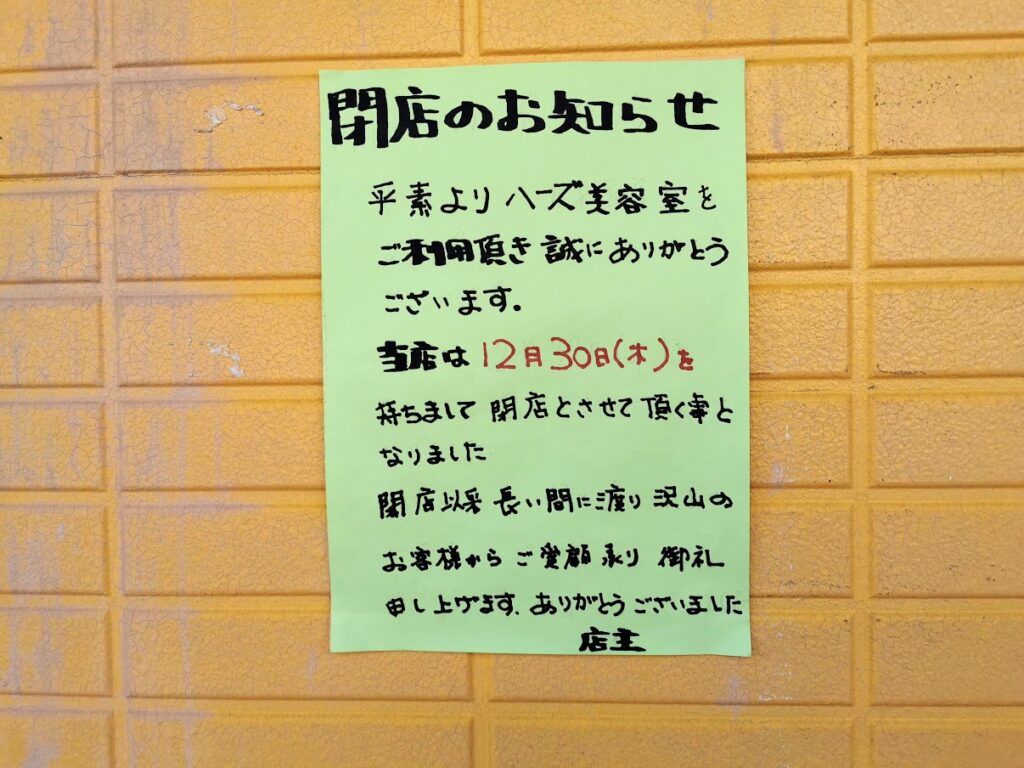 閉店のお知らせ
平素よりハーズ美容室を
ご利用頂き誠にありがとう
ございます。
当店は12月30日(木)を
持ちまして閉店とさせて頂く事と
なりました
閉店以来長い間に渡り沢山の
お客様からご愛顧承り御礼
申し上げます、ありがとうございました
店主